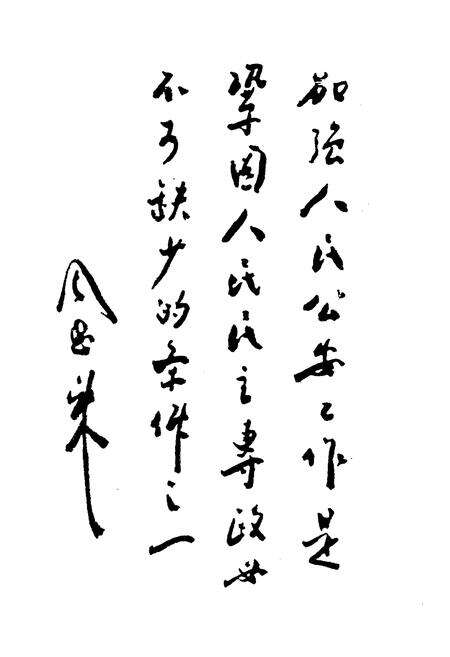 加强人民公安工作是
鞏固人民民主專政必
不可缺少的条件之一
周恩来